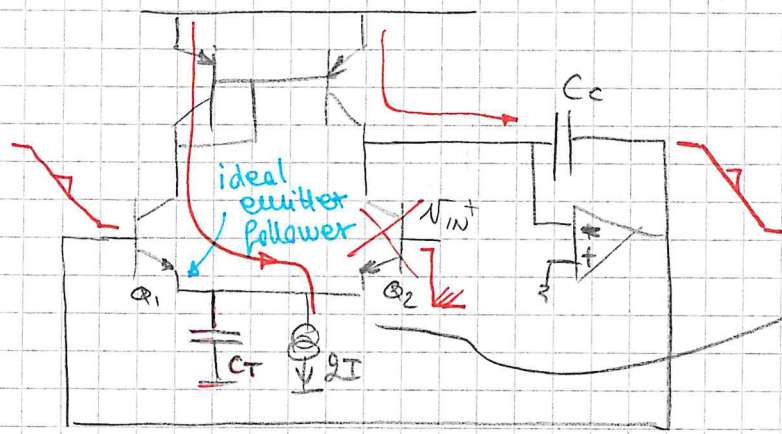 Cc
ideal
emitter
follower
VIN+
-
+
Q1
Q2
CT
2I